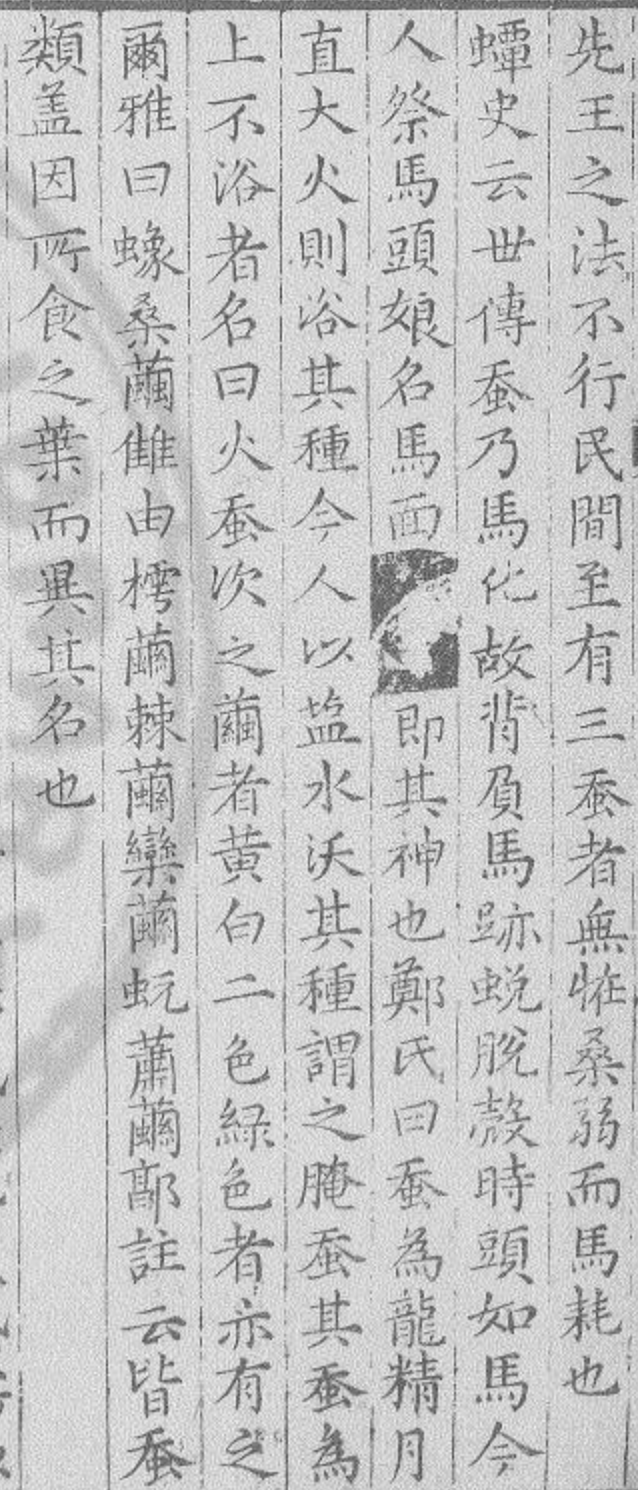 先王之法不行民間至有三蚕者無恠桑弱而馬耗也
蟫史云世傳蚕乃馬化故背負馬跡蛻脫殼時頭如馬今
人祭馬頭娘名馬面即其神也鄭氏曰蚕為龍精月
直大火則浴其種今人以塩水沃其種謂之腌蚕其蚕為
上不浴者名曰火蚕次之繭者黄白二色緑色者亦有之
爾雅曰蟓桑繭雔由樗繭棘繭欒繭蚖蕭繭郭註云皆蚕
類盖因所食之葉而異其名也